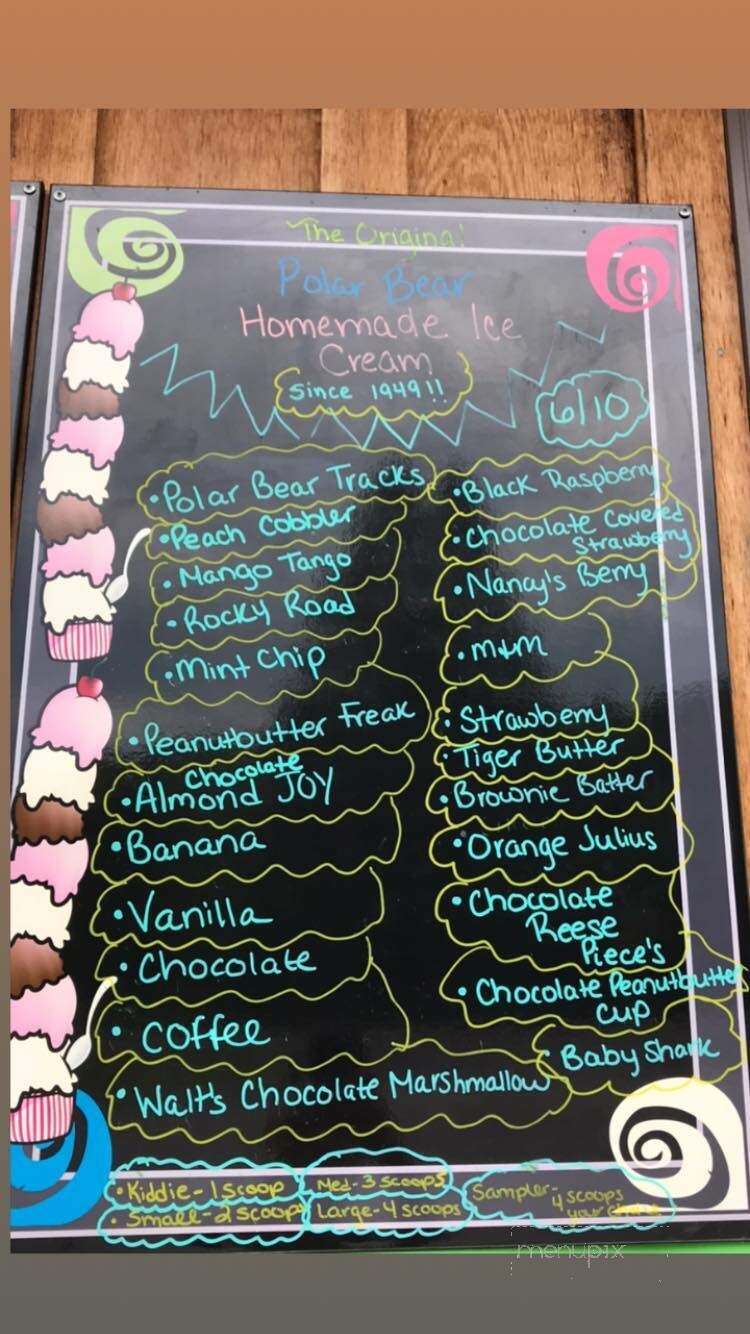 The Original
Polar Bear
Homemade Ice
Cream
Since 1949!!
6/10
• Polar Bear Tracks
• Peach Cobbler
• Mango Tango
• Rocky Road
• Mint Chip
• Peanutbutter Freak
Chocolate
• Almond JOY
• Banana
• Vanilla
• Chocolate
• Coffee
• Walt's Chocolate Marshmallow
• Black Raspberry
• Chocolate Covered
Strawberry
• Nancy's Berry
• M&M
• Strawberry
• Tiger Butter
• Brownie Batter
• Orange Julius
• Chocolate
Reese
Piece's
• Chocolate Peanutbutter
Cup
Baby Shark
• Kiddie - 1 scoop
• Small - 2 scoops
Med - 3 scoops
Large - 4 scoops
Sampler -
4 scoops
your
menupix